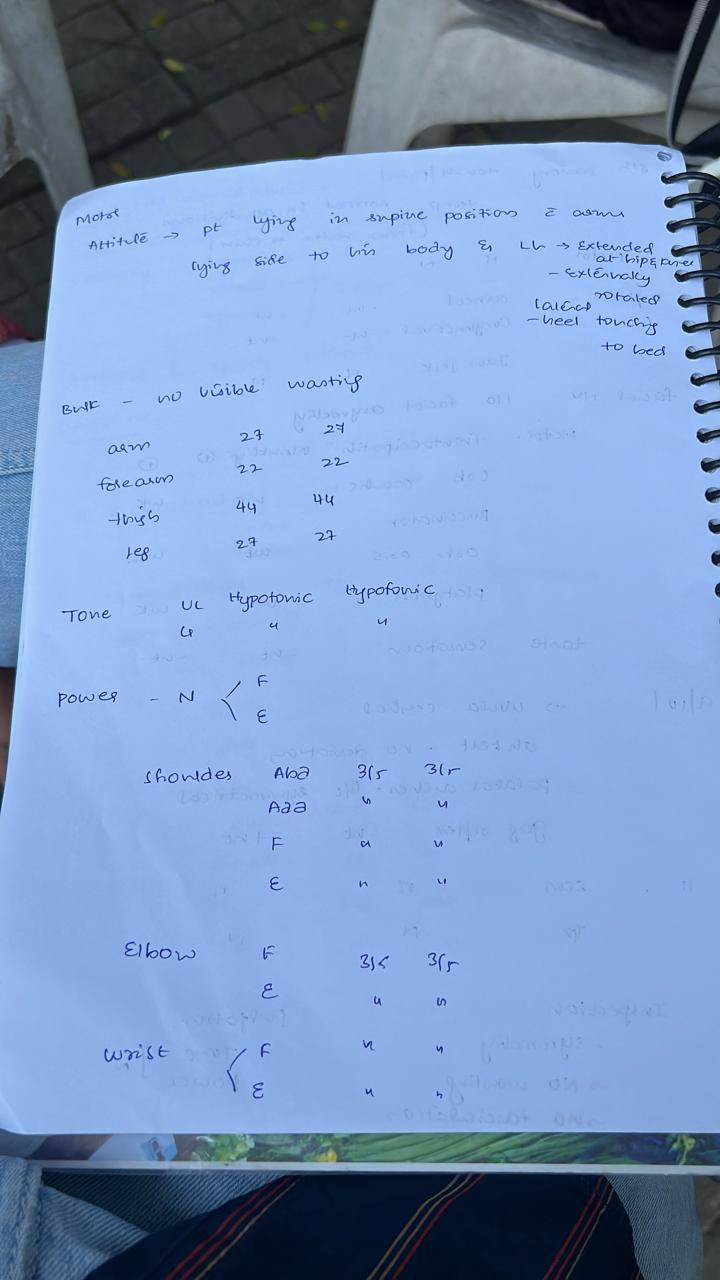 Motor
Attitude → pt lying in supine position c̄ arms
lying side to his body & LL → Extended
at hip & knee
- Externally
lateral rotated
- heel touching
to bed
Bulk - no visible wasting
arm 27 27
forearm 22 22
thigh 44 44
leg 27 27
Tone UL Hypotonic Hypotonic
LL " "
Power - N < F
E
Shoulder Abd 3/5 3/5
Add " "
F " "
E " "
Elbow F 3/5 3/5
E " "
Wrist < F " "
E " "